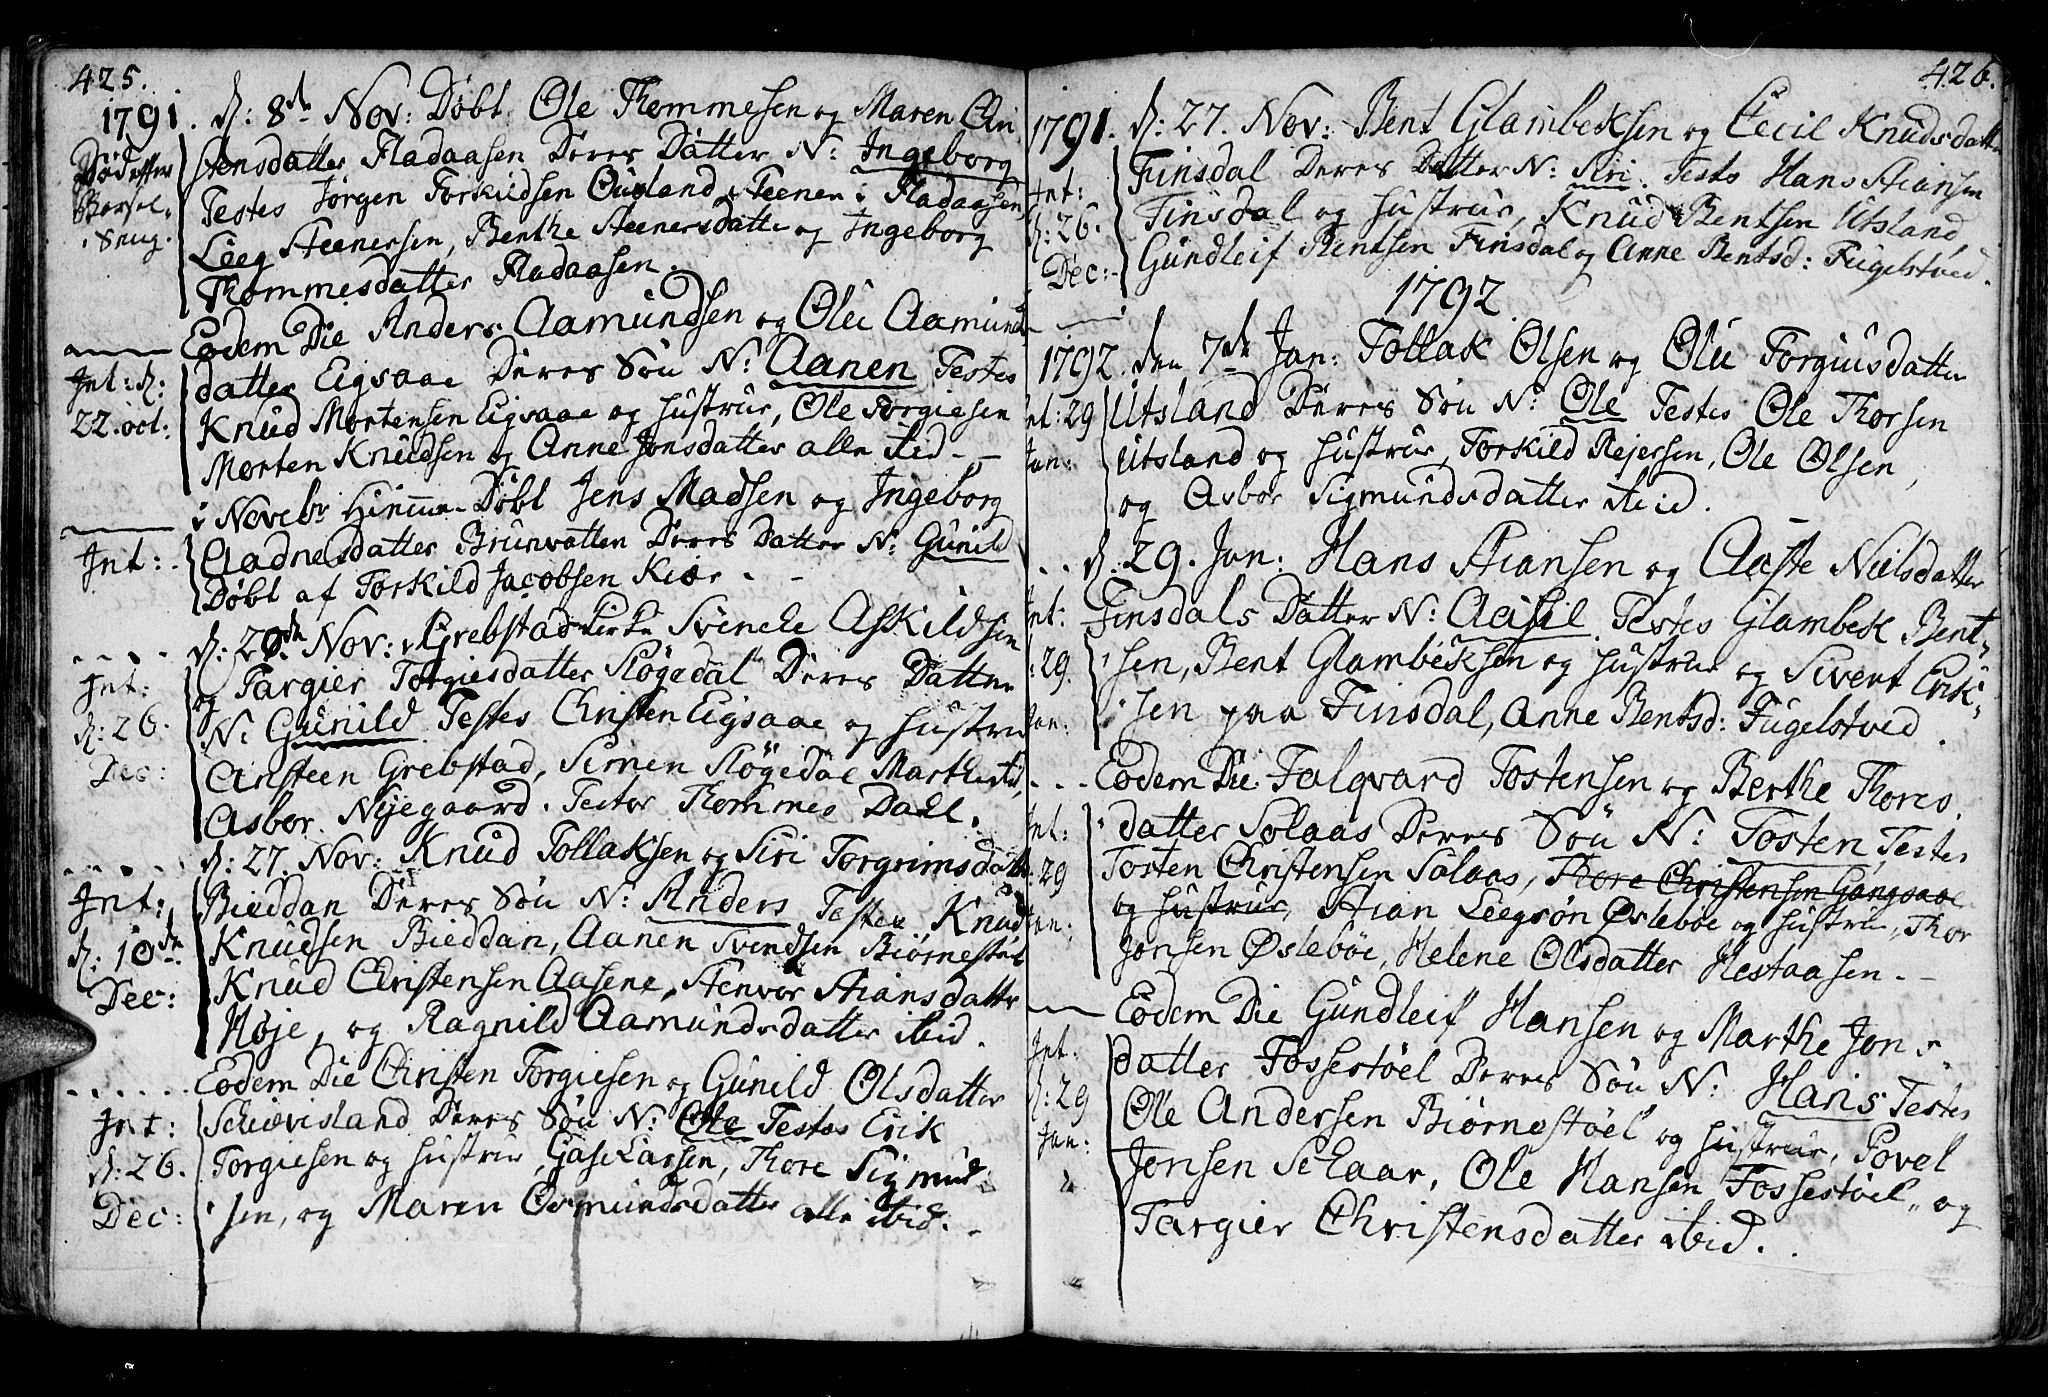 425.
1791. d: 8de Nov: Døbt Ole Thommesen og Maren Chri
Død efter stensdatter Fladaasen Deres Datter N: Ingeborg
Barsel- Testes Jørgen Torkildsen Ougland, Steener i Fladaasen
Seng. Leeg Steenersen, Benthe Steenersdatter og Ingeborg
Thommesdatter Fladaasen.
Eodem Die Anders Aamundsen og Olu Aamunds
Int: d: datter Eigsaae Deres Søn N: Aanen Testes
22. oct: Knud Mortensen Eigsaae og Hustrue, Ole Torgiesen
Morten Knudsen og Anne Jonsdatter alle ibid.
i Novebr Hiemme Døbt Jens Madsen og Ingeborg
Int: Aadnesdatter Brunvatten Deres Datter N: Gunild
Døbt af Torkild Jacobsen Kiær.
d: 20de Nov: i Grebstad Kirke Svenche Askildsen
Int: og Targier Torgiesdatter Fløgedal Deres Datter
d: 26. N: Gunild Testes Christen Eigsaae og Hustrue
Dec: Ansteen Grebstad, Simen Fløgedal Marthe ibid,
Asbor Nyegaard. Testor Thommes Dall.
d: 27. Nov: Knud Tollaksen og Siri Torgrimsdatter
Int: Bieddan Deres Søn N: Anders Testes Knud
d: 10de Knudsen Bieddan, Aanen Svendsen Biørnestøl
Dec: Knud Christensen Aasene, Stenvor Stiansdatter
Høje, og Ragnild Aamundsdatter ibid.
Eodem Die Christen Torgiesen og Gunild Olsdatter
Int: Schievisland Deres Søn N: Ole Testes Erik
d: 26. Torgiesen og Hustrue, Gase Larsen, Thore Sigmund
Dec: sen, og Maren Osmundsdatter alle ibid.
426.
1791. d: 27. Nov: Bent Glambeksen og Cecil Knudsdatter
Int: Finsdal Deres Datter N: Siri. Tests Hans Stiansen
d: 26. Finsdal og Hustrue, Knud Bentsen Utsland,
Dec: Gundleif Bentsen Finsdal og Anne Bentsd: Fugelstved.
1792.
1792. den 7de Jan: Tollak Olsen og Olu Torgiusdatter
Int: 29 Utsland Deres Søn N: Ole Testes Ole Thorsen
Jan: Utsland og Hustrue, Torkild Rejersen, Ole Olsen,
og Asbor Sigmundsdatter ibid.
d. 29. Jan: Hans Stiansen og Aaste Nielsdatter
Int: Finsdals Datter N: Aasil Testes Glambek Bent-
d: 29. sen, Bent Glambeksen og Hustrue og Sivert Erik-
Jan: sen paa Finsdal, Anne Bentsd: Fugelstved.
Eodem Die Falqvard Tostensen og Berthe Thores
Int: datter Solaas Deres Søn N: Tosten, Testes
d: 29 Tosten Christensen Solaas, Thore Christensen Gangsaae
Jan: og Hustrue, Stian Leegsøn Øslebøe og Hustrue, Thor
Jonsen Øslebøe, Helene Olsdatter Hestaasen.
Eodem Die Gundleif Hansen og Marthe Jons
Int. datter Fossestøel Deres Søn N: Hans Testes
d: 29 Ole Andersen Biørnestøel og Hustrue, Povel
Jan: Jonsen Selaar, Ole Hansen Fossestøel, og
Targier Christensdatter ibid.